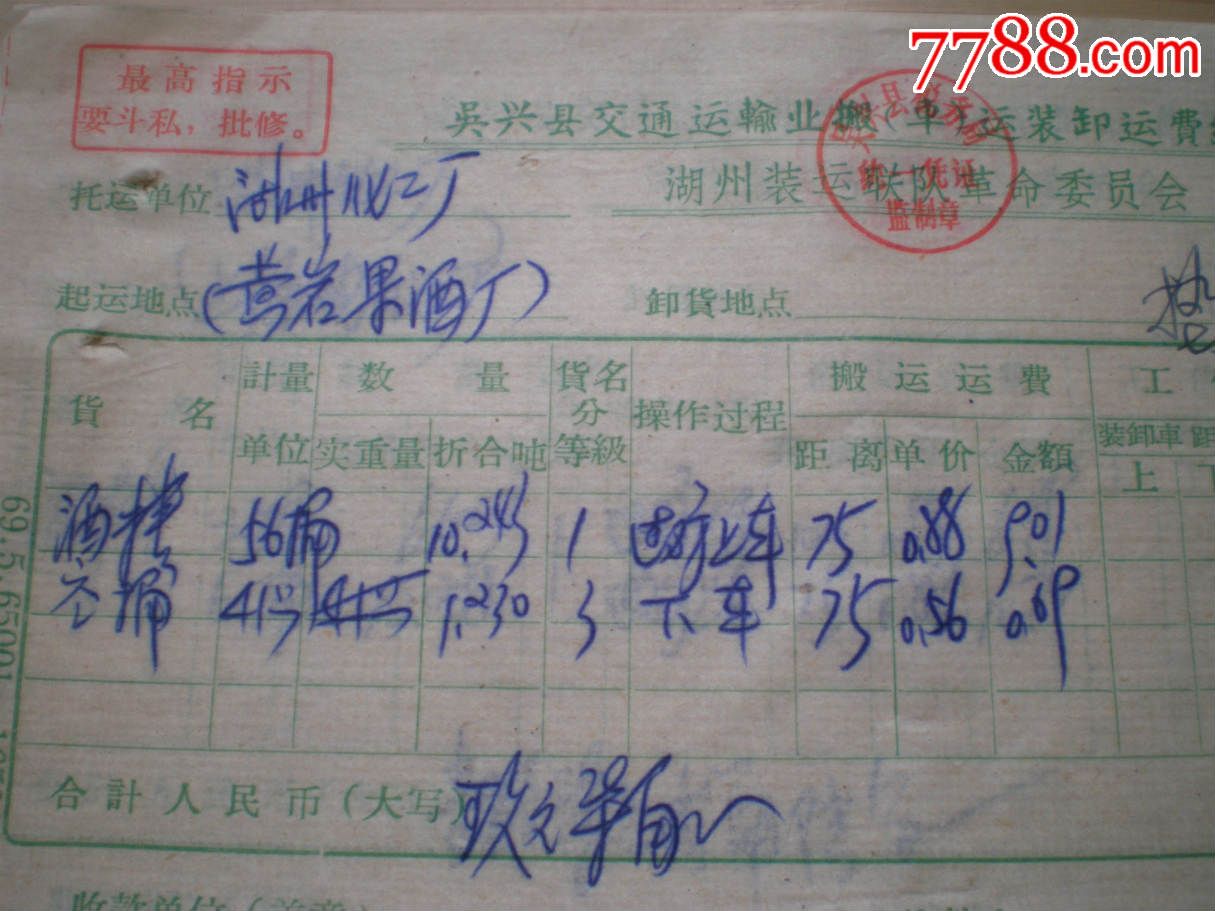 7788.com
最高指示
要斗私，批修。
吳兴县交通运輸业搬(車)运装卸运費
湖州装运联队革命委员会
统一凭证
监制章
托运单位 湖州化工二厂
起运地点 (莺岩果酒厂) 卸貨地点
貨名 計量单位 数量 貨名分等級 操作过程 搬运运費 工
实重量 折合吨 距离 单价 金額 装卸車 距
上
酒精 56桶 10.243 1 过磅上车 75 0.88 9.01
空桶 41只 1.230 3 下车 75 0.56 0.69
合計人民币(大写) 玖元柒角
69.5.65001
收款单位(盖章)